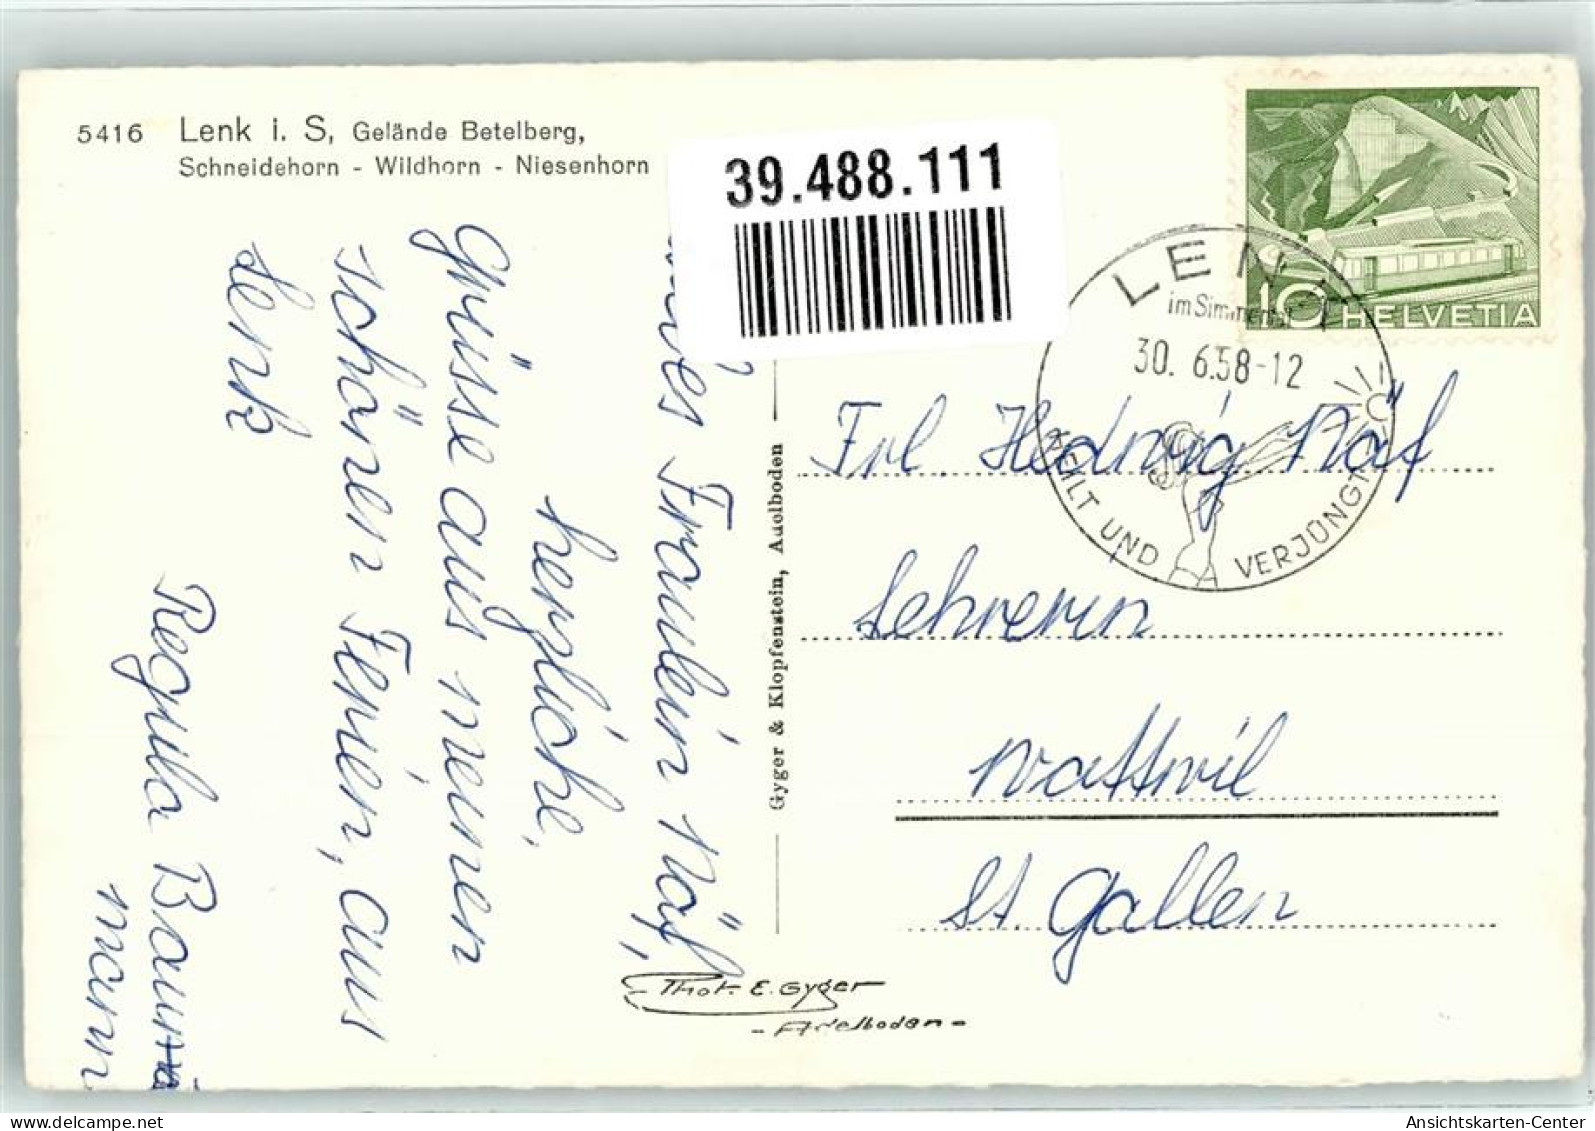 5416 Lenk i. S, Gelände Betelberg,
Schneidehorn - Wildhorn - Niesenhorn
39.488.111
Fräulein Näf,
herzliche
Grüsse aus meinen
schönen Ferien, aus
Lenk
Regula Baum
mann
Gyger & Klopfenstein, Adelboden
Phot. E. Gyger
- Adelboden -
10 HELVETIA
LEN
im Simmental
30. 6.58-12
HEILT UND VERJÜNGT
Frl. Hedwig Näf
Lehrerin
Wattwil
St. Gallen
Ansichtskarten-Center